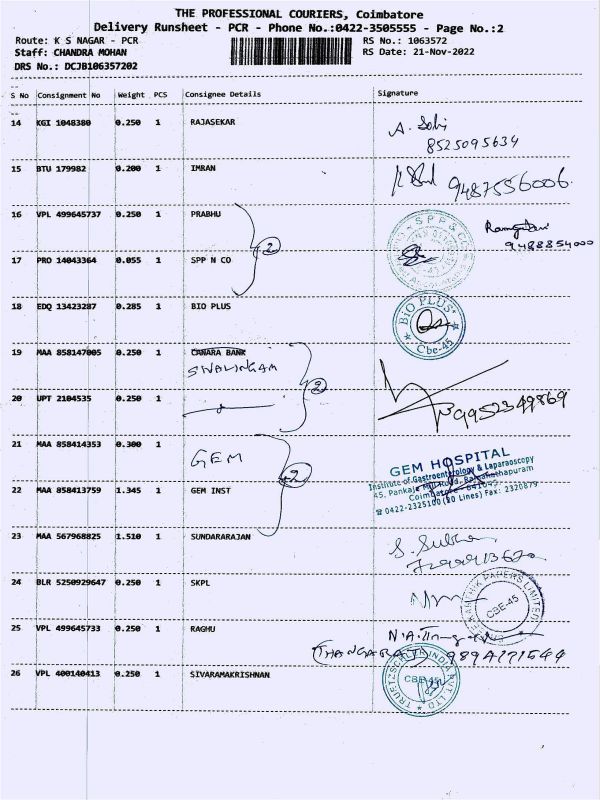 THE PROFESSIONAL COURIERS, Coimbatore
Delivery Runsheet - PCR - Phone No.:0422-3505555 - Page No.:2
Route: K S NAGAR - PCR RS No.: 1063572
Staff: CHANDRA MOHAN RS Date: 21-Nov-2022
DRS No.: DCJB106357202
S No Consignment No Weight PCS Consignee Details Signature
14 KGI 1048380 0.250 1 RAJASEKAR
8525095634
15 BTU 179982 0.200 1 IMRAN
9487556006.
16 VPL 499645737 0.250 1 PRABHU
9488854000
2
SPP & CO
17 PRO 14043364 0.055 1 SPP N CO
18 EDQ 13423287 0.285 1 BIO PLUS
BIO PLUS
Cbe-45
19 MAA 858147005 0.250 1 CANARA BANK
SIVALINGAM
2
20 UPT 2104535 0.250 1
9952349869
21 MAA 858414353 0.300 1
GEM
2
GEM HOSPITAL
Institute of Gastroenterology & Laparaoscopy
45, Pankaja Mill Road, Ramanathapuram
Coimbatore - 641045
0422-2325100 (30 Lines) Fax: 2320879
22 MAA 858413759 1.345 1 GEM INST
23 MAA 567968825 1.510 1 SUNDARARAJAN
24 BLR 5250929647 0.250 1 SKPL
PAPERS LIMITED
CBE-45
25 VPL 499645733 0.250 1 RAGHU
THANGARAJ
26 VPL 400140413 0.250 1 SIVARAMAKRISHNAN
TRUETZSCHLER INDIA PVT. LTD
CBE-45